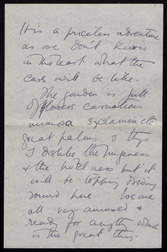 It is a priceless adventure
as we don't know
in the least what the
cars will be like.
The garden is full
of flowers carnations
mimosa cyclamen etc
great palms &
I dislike the hugeness
& the hotel ness but it
will be topping driving
round here we are
all very amused &
ready for anything which
is the great thing.